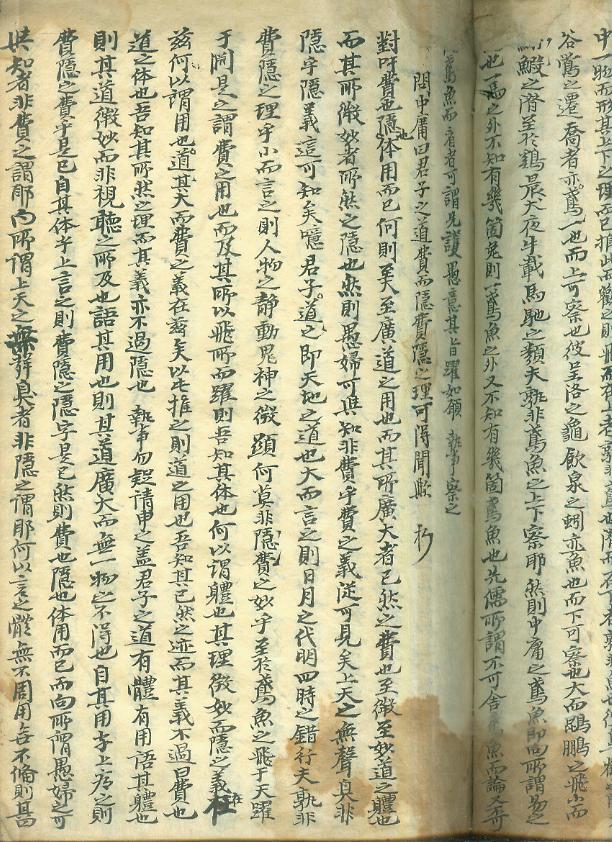 中一物而形其上下之理而已
谷鶯之遷喬者亦鳶一也而上可察也彼呈洛之龜飮泉之蚓亦魚也而下可察也大而鵾鵬之飛小而
鰕之潛至於鷄晨犬夜牛載馬馳之類夫孰非鳶魚之上下察耶然則中庸之鳶魚即向所謂易之
也一馬之外不知有幾箇兔則一鳶魚之外又不知有幾箇鳶魚也先儒所謂不可舍鳶魚而論又
鳶魚而 者可謂先護愚意其旨躍如願 執事察之
問中庸曰君子之道費而隱費隱之理可得聞歟
對吁費也隱也体用而已何則至大至廣道之用也而其所廣大者已然之費也至微至妙道之體也
而其所微妙者所然之隱也然則愚婦可與知非費乎費之義從可見矣上天之無聲臭非
隱乎隱義這可知矣噫君子之道即天地之道也大而言之則日月之代明四時之錯行夫孰非
費隱之理乎小而言之則人物之靜動鬼神之微顯何莫非隱費之妙乎至於鳶魚之飛于天躍
于淵是之謂費之用也而及其所以飛所而躍則吾知其体也何以謂體也其理微妙而隱之義在
玆何以謂用也道其大而費之義在 矣以此推之則道之用也吾知其已然之迹而其義不過曰費也
道之体也吾知其所然之理而其義亦不過隱也 執事向 請申之盖君子之道有體有用語其體也
則其道微妙而非視聽之所及也語其用也則其道廣大而無一物之不得也自其用字上 之則
費隱之費字是已自其体字上言之則費隱之隱字是已然則費也隱也体用而已而向所謂愚婦之可
與知者非費之謂耶向所謂上天之無聲臭者非隱之謂耶何以言之體無不周用